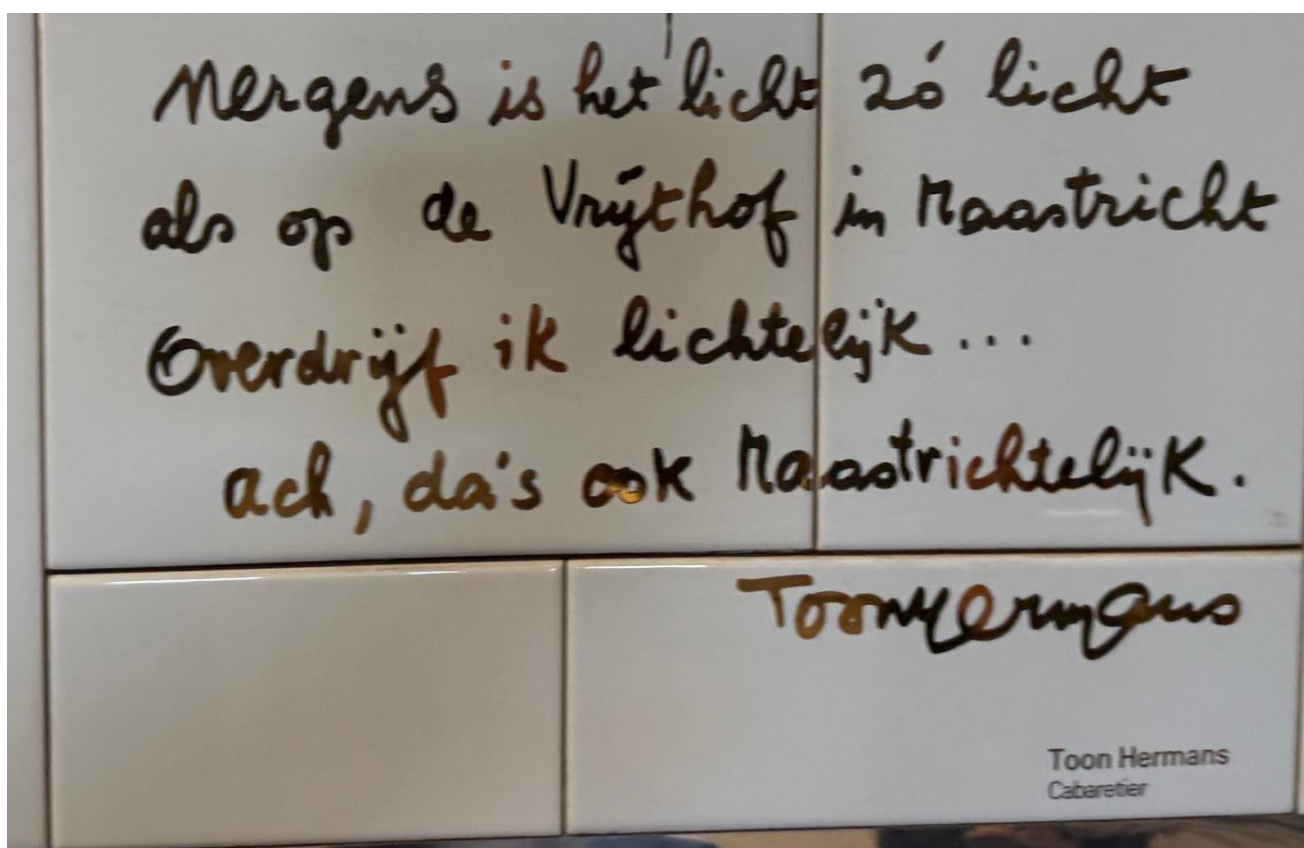 Nergens is het licht zó licht
als op de Vrijthof in Maastricht
Overdrijf ik lichtelijk...
ach, da's ook Maastrichtelijk.
Toon Hermans
Toon Hermans
Cabaretier